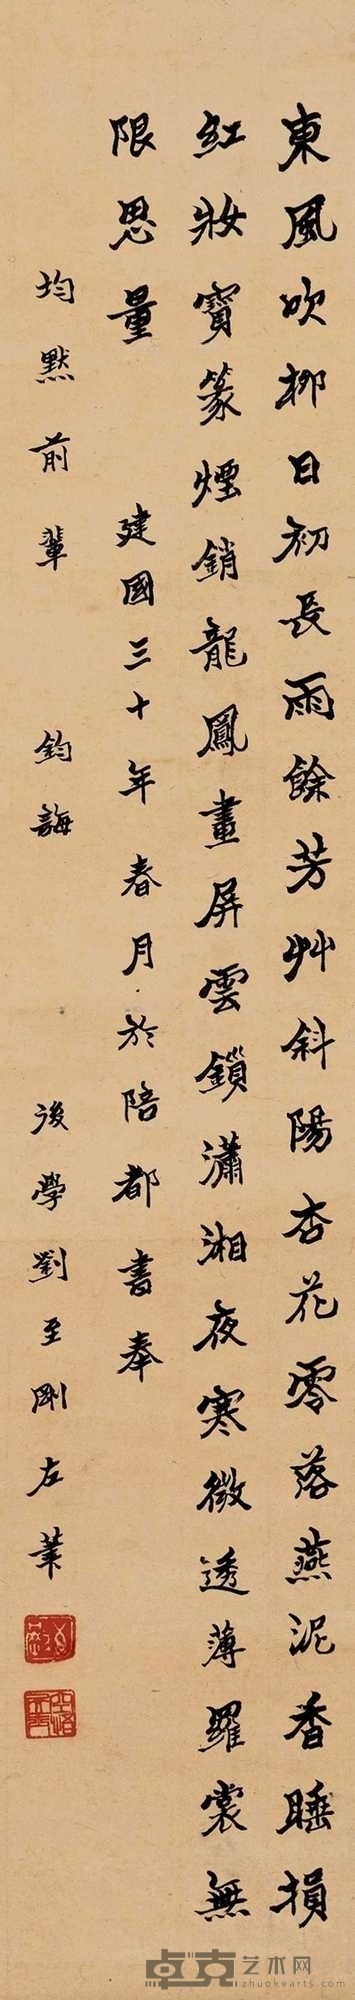 東風吹柳日初長雨餘芳艸斜陽杏花零落燕泥香睡損
紅妝寶篆煙銷龍鳳畫屏雲鎖瀟湘夜寒微透薄羅裳無
限思量
建國三十年春月於陪都書奉
均默前輩 鈞誨
後學劉至剛左筆
卓克艺术网
zhuokearts.com